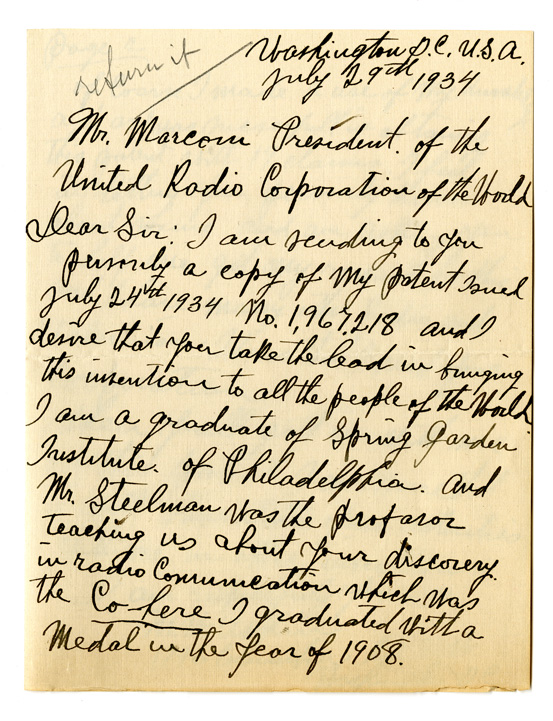 return it
Washington D.C. U.S.A.
July 29th 1934
Mr. Marconi President. of the
United Radio Corporation of the World
Dear Sir: I am sending to you
personly a copy of My patent Isued
July 24th 1934 No. 1,967,218 and I
desire that you take the lead in bringing
this invention to all the people of the World
I am a graduate of Spring Garden
Institute. of Philadelphia. and
Mr. Steelman was the profasor
teaching us about your discovery.
in radio Communication which was
the Co-here I graduated with a
Medal in the year of 1908.